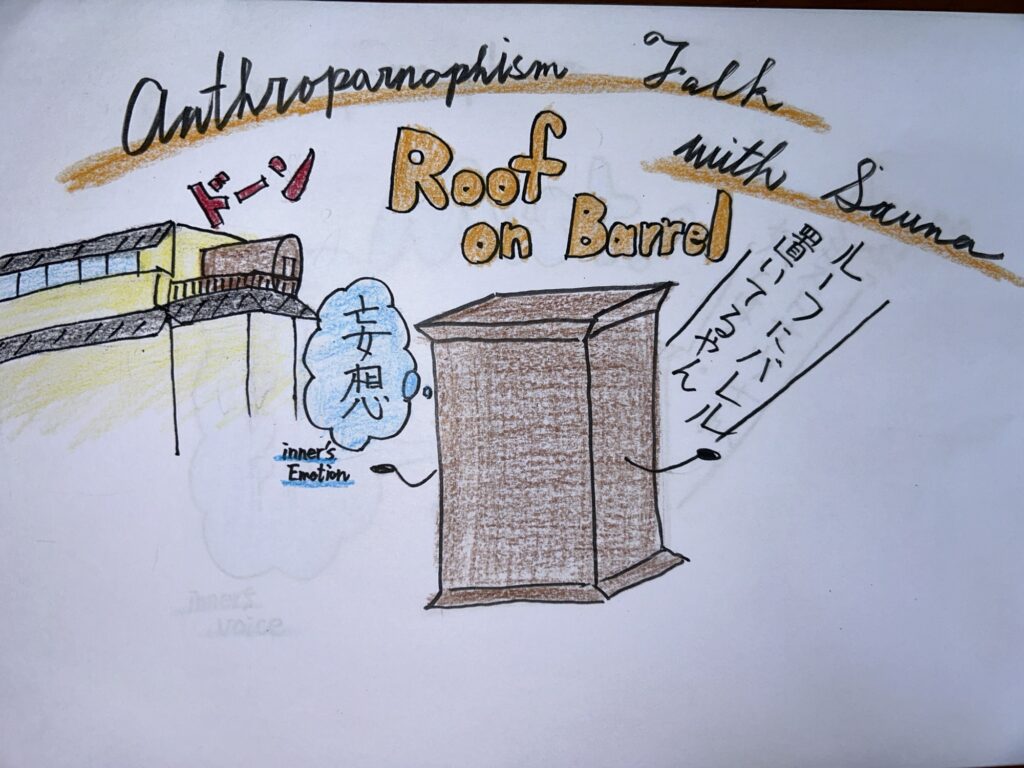 Anthroparnophism Talk
with Sauna
Roof
on Barrel
ドーン
妄想
inner's
Emotion
ルーフにバレル
置いてるやん
voice